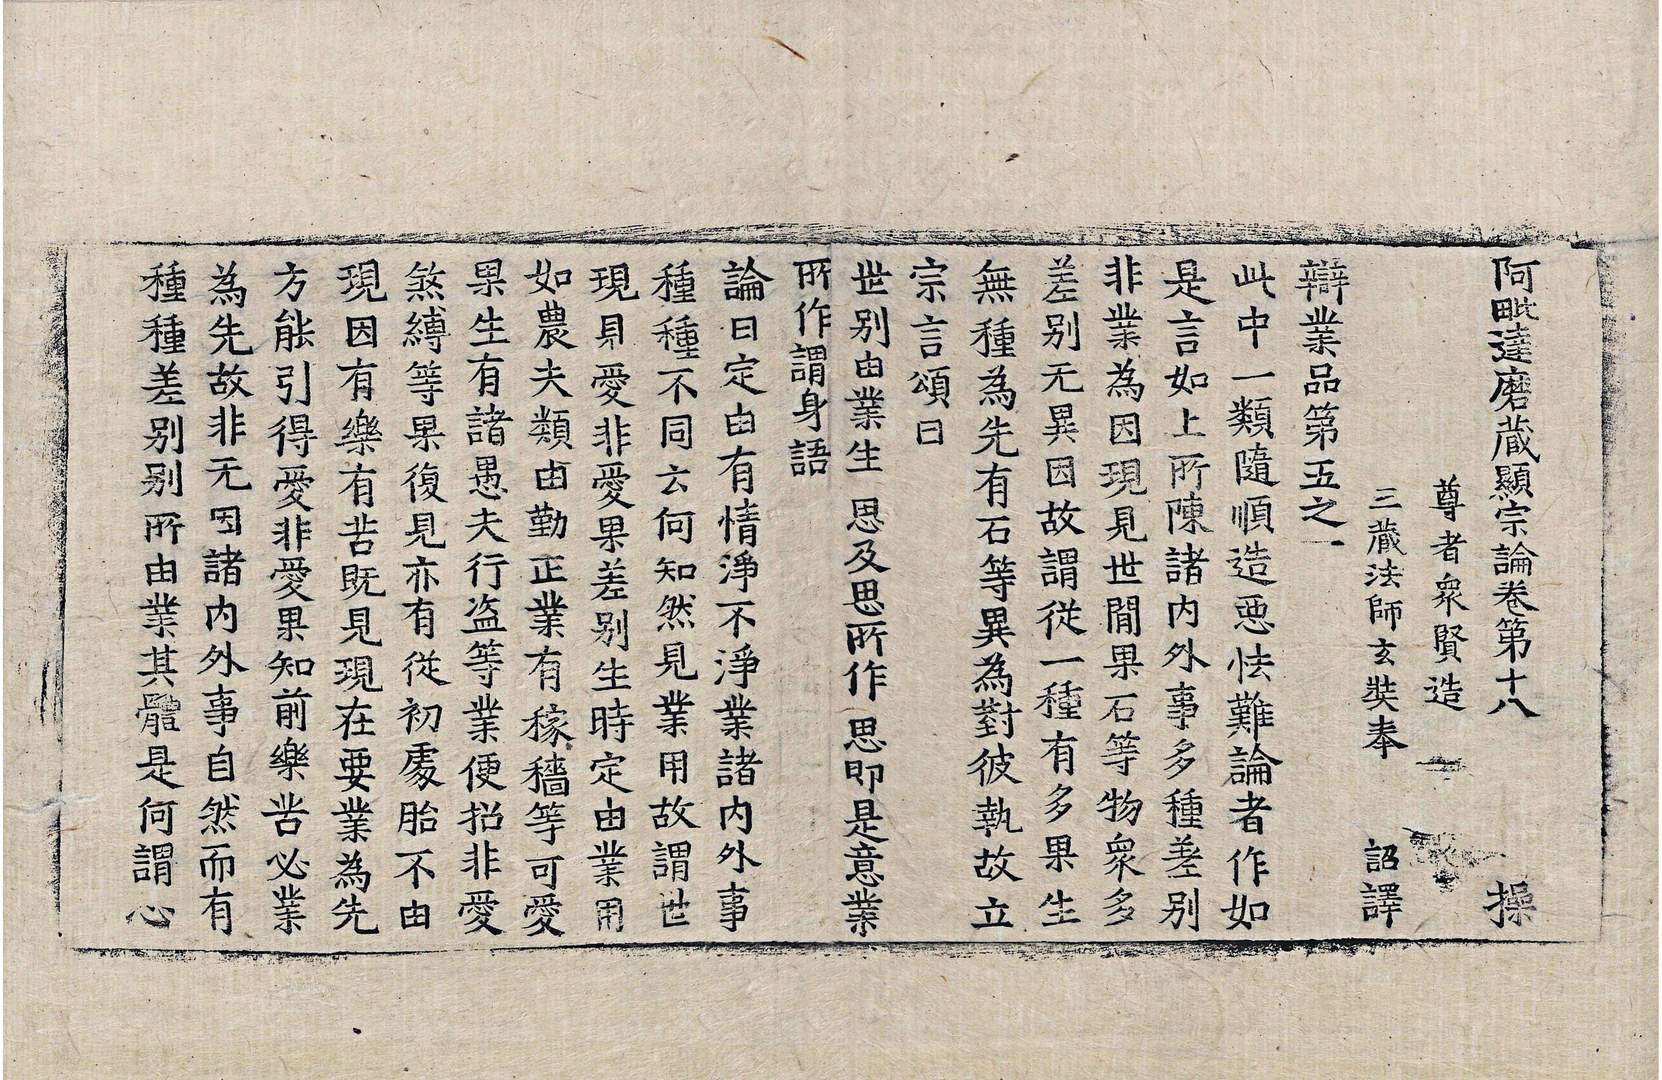 阿毗達磨藏顯宗論卷第十八 操
尊者衆賢造
三藏法師玄奘奉 詔譯
辯業品第五之一
此中一類隨順造惡怯難論者作如
是言如上所陳諸內外事多種差別
非業為因現見世間果石等物衆多
差別无異因故謂從一種有多果生
無種為先有石等異為對彼執故立
宗言頌曰
世別由業生 思及思所作 思即是意業
所作謂身語
論曰定由有情淨不淨業諸內外事
種種不同云何知然見業用故謂世
現見愛非愛果差別生時定由業用
如農夫類由勤正業有稼穡等可愛
果生有諸愚夫行盜等業便招非愛
煞縛等果復見亦有從初處胎不由
現因有樂有苦既見現在要業為先
方能引得愛非愛果知前樂苦必業
為先故非无因諸內外事自然而有
種種差別別所由業其體是何謂心